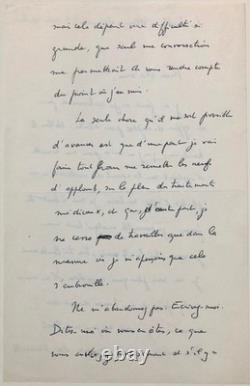 mais cela dépeint une difficulté si
grande, que seule une conversation
me permettrait de vous rendre compte
du point où j'en suis.
La seule chose qu'il me soit possible
d'avancer est que d'une part je vais
faire tout pour me remettre les nerfs
d'aplomb, sur le plan des traitements
médicaux, et que, d'autre part, je
ne cesse de travailler que dans la
mesure où je m'aperçois que cela
s'embrouille.
Ne m'abandonnez pas. Ecrivez-moi.
Dites-moi où vous en êtes, ce que
vous et s'il y a